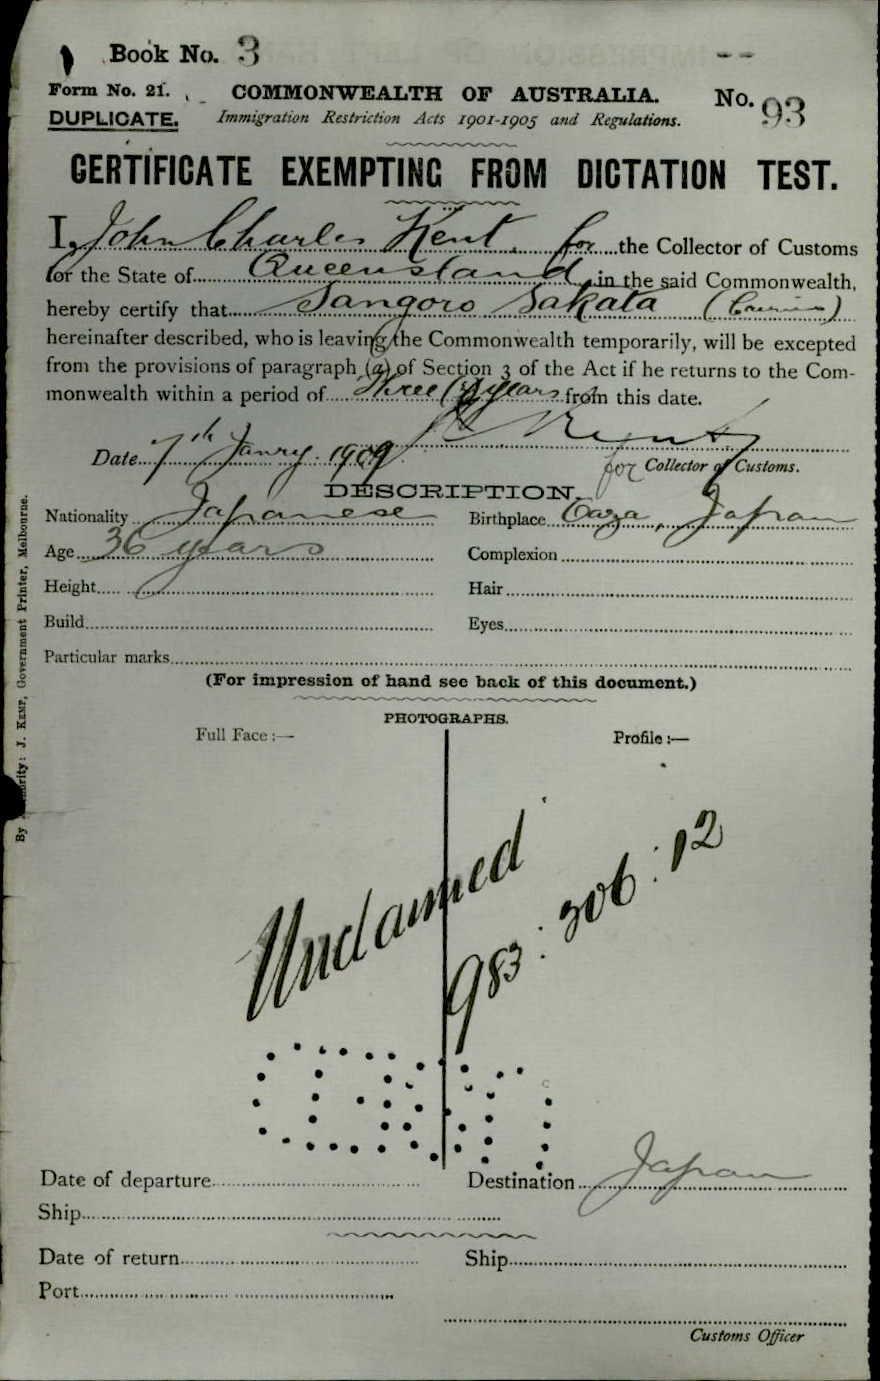 Book No. 3
Form No. 21.
COMMONWEALTH OF AUSTRALIA.
No. 93
DUPLICATE.
Immigration Restriction Acts 1901-1905 and Regulations.
CERTIFICATE EXEMPTING FROM DICTATION TEST.
I, John Charles Kent, for the Collector of Customs
for the State of Queensland in the said Commonwealth,
hereby certify that Sangoro Sakata
hereinafter described, who is leaving the Commonwealth temporarily, will be excepted
from the provisions of paragraph (a) of Section 3 of the Act if he returns to the Com-
monwealth within a period of Three (3) years from this date.
J C Kent
Date 7th Janry. 1909
for Collector of Customs.
DESCRIPTION.
Nationality Japanese
Birthplace Japan
Age 36 years
Complexion
Height
Hair
Build
Eyes
Particular marks
(For impression of hand see back of this document.)
PHOTOGRAPHS.
Full Face :—
Profile :—
Unclaimed
983 : 306 : 12
Date of departure
Destination Japan
Ship
Date of return
Ship
Port
Customs Officer
By Authority: J. KEMP, Government Printer, Melbourne.